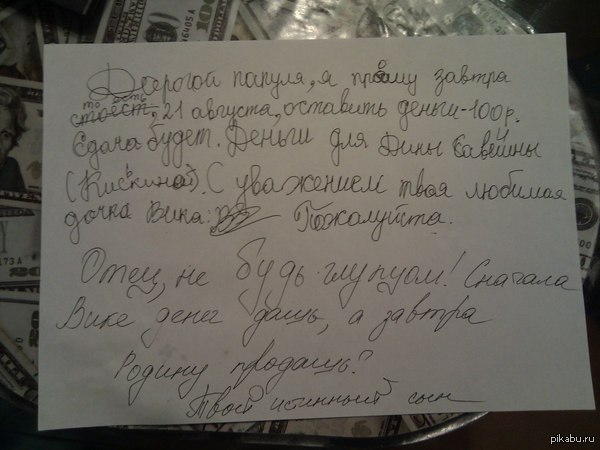 Дорогой папуля, я прошу завтра
то есть, 21 августа, оставить деньги - 100 р.
Сдача будет. Деньги для Дины
(Кискиной). С уважением твоя любимая
дочка Вика. Пожалуйста.
Отец, не будь глупцом! Сначала
Вике денег дашь, а завтра
Родину продашь?
Твой истинный сын
pikabu.ru